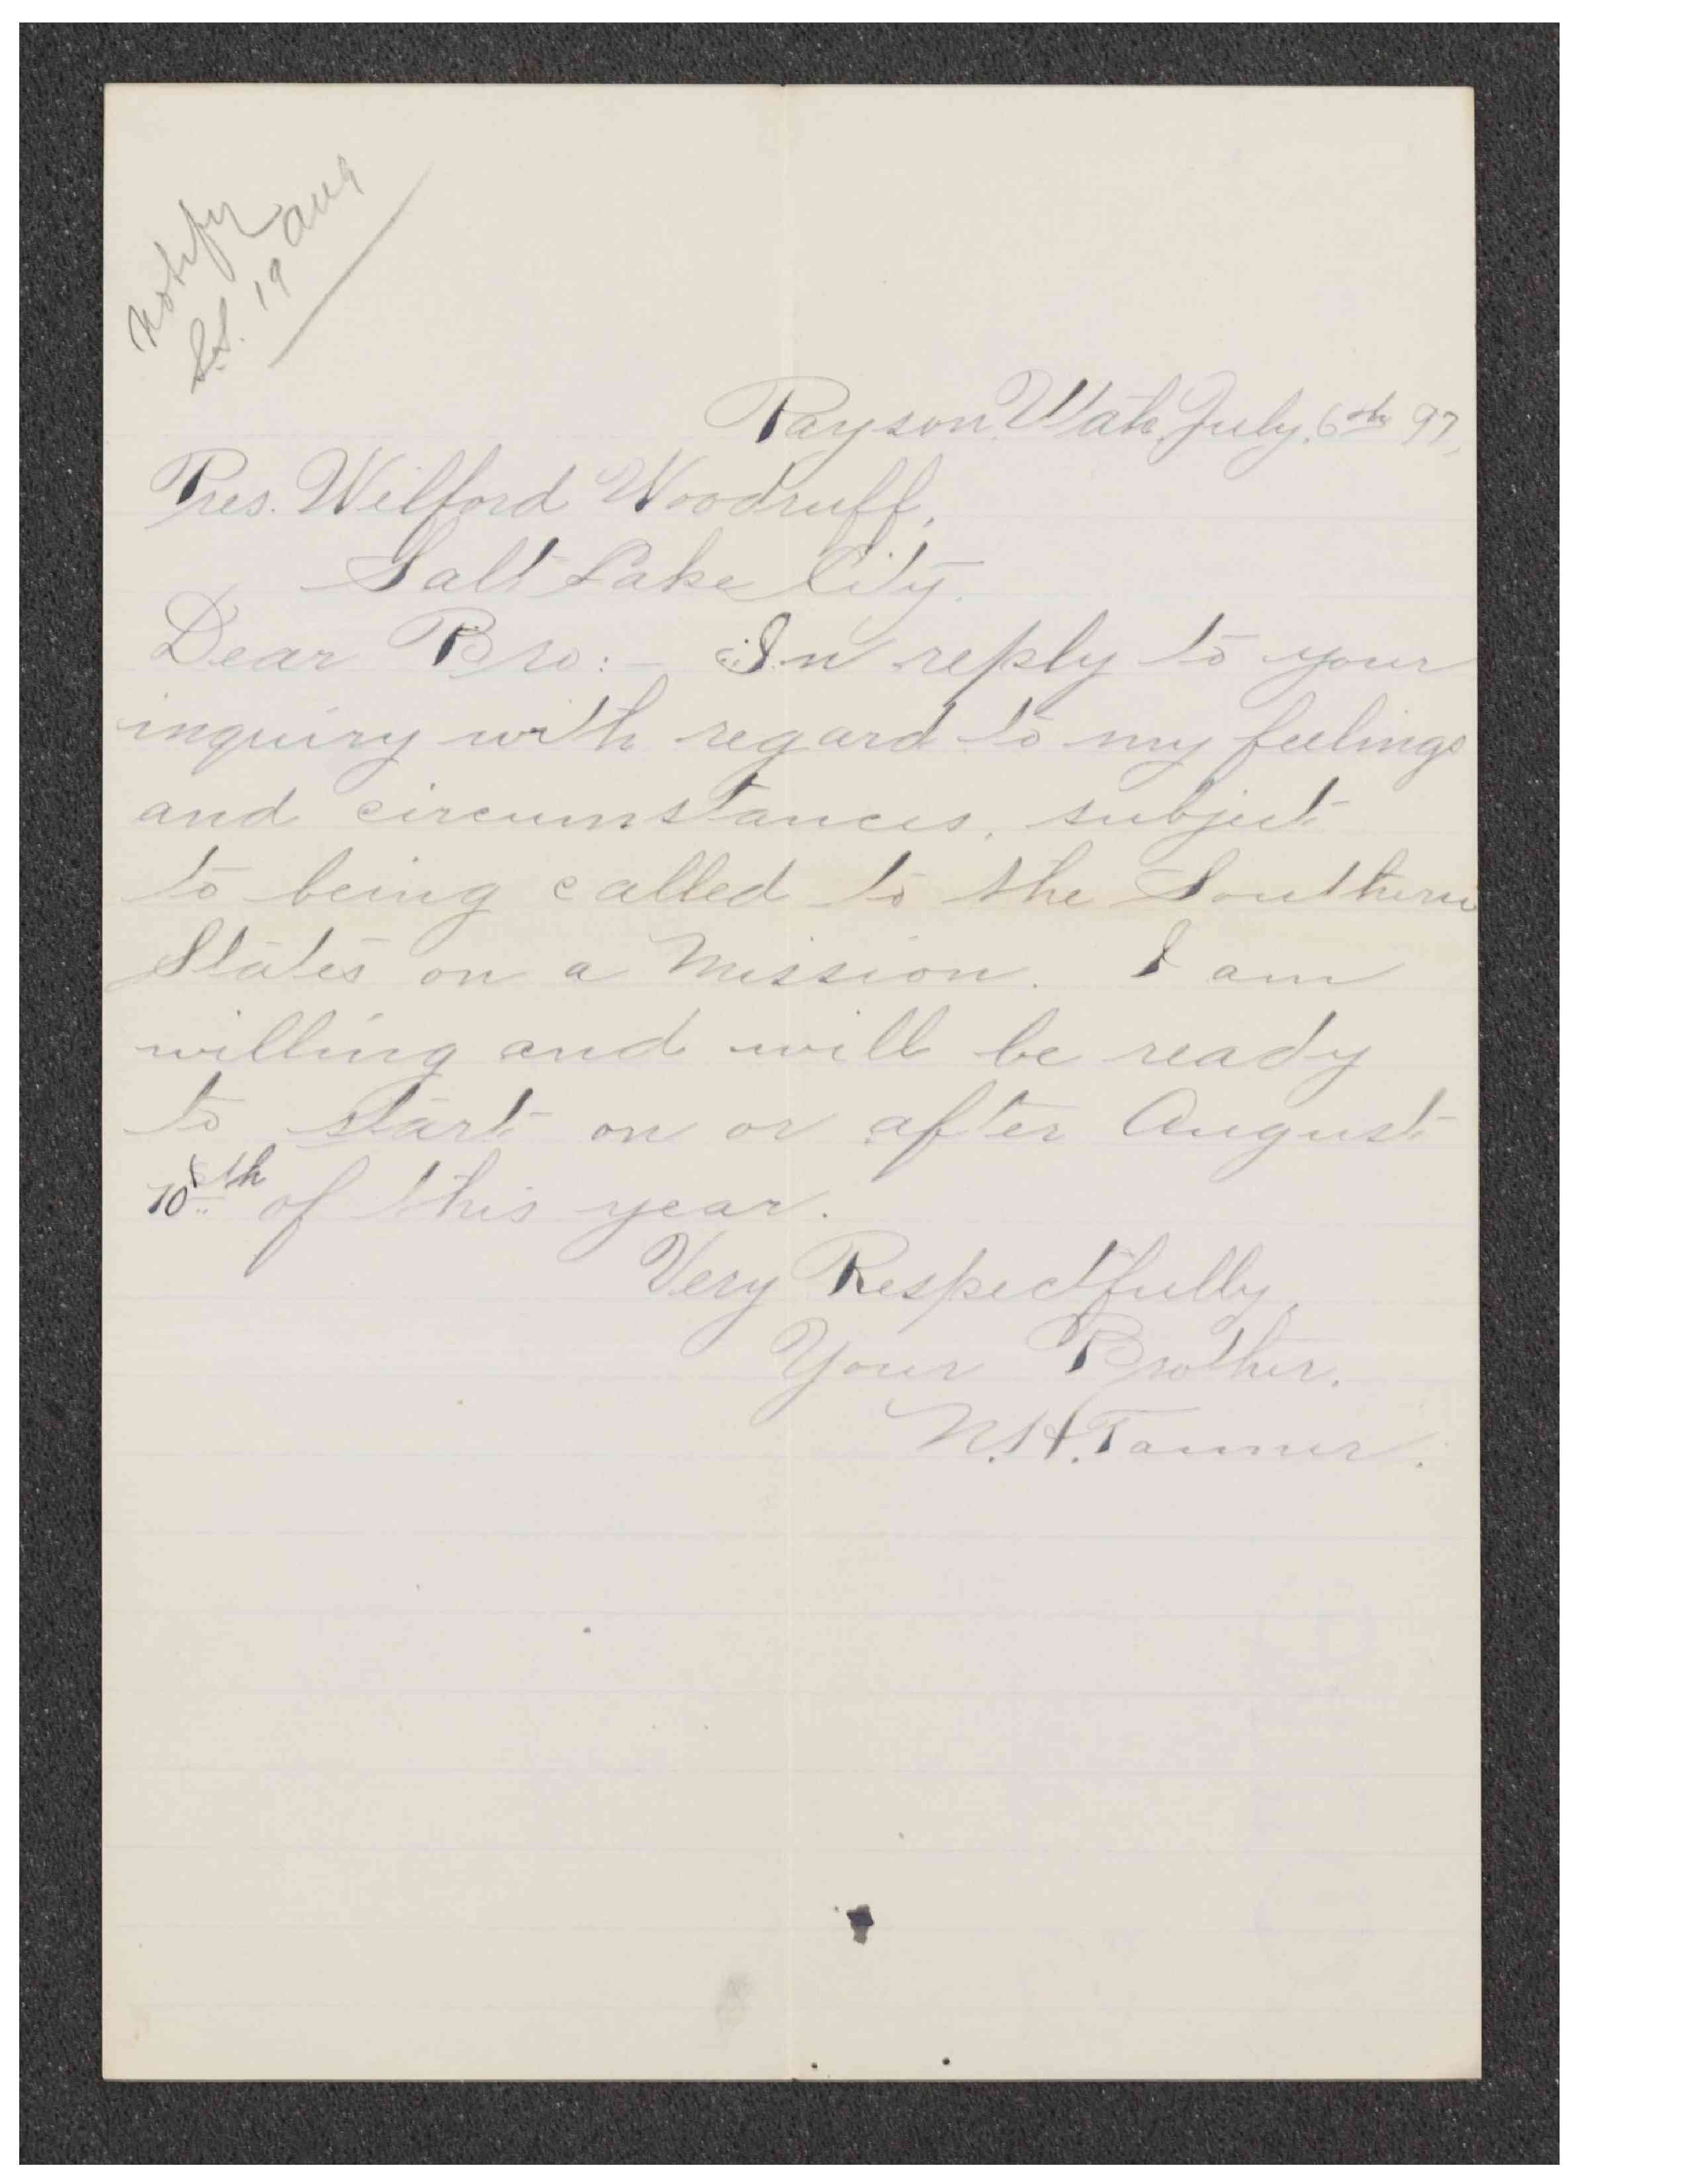 Notify
S.S. 19 Aug
Payson, Utah, July, 6th 97,
Pres. Wilford Woodruff,
Salt Lake City.
Dear Bro:- In reply to your
inquiry with regard to my feelings
and circumstances, subject
to being called to the Southern
States on a Mission. I am
willing and will be ready
to start on or after August
10th of this year.
Very Respectfully,
Your Brother.
N.H. Tanner.